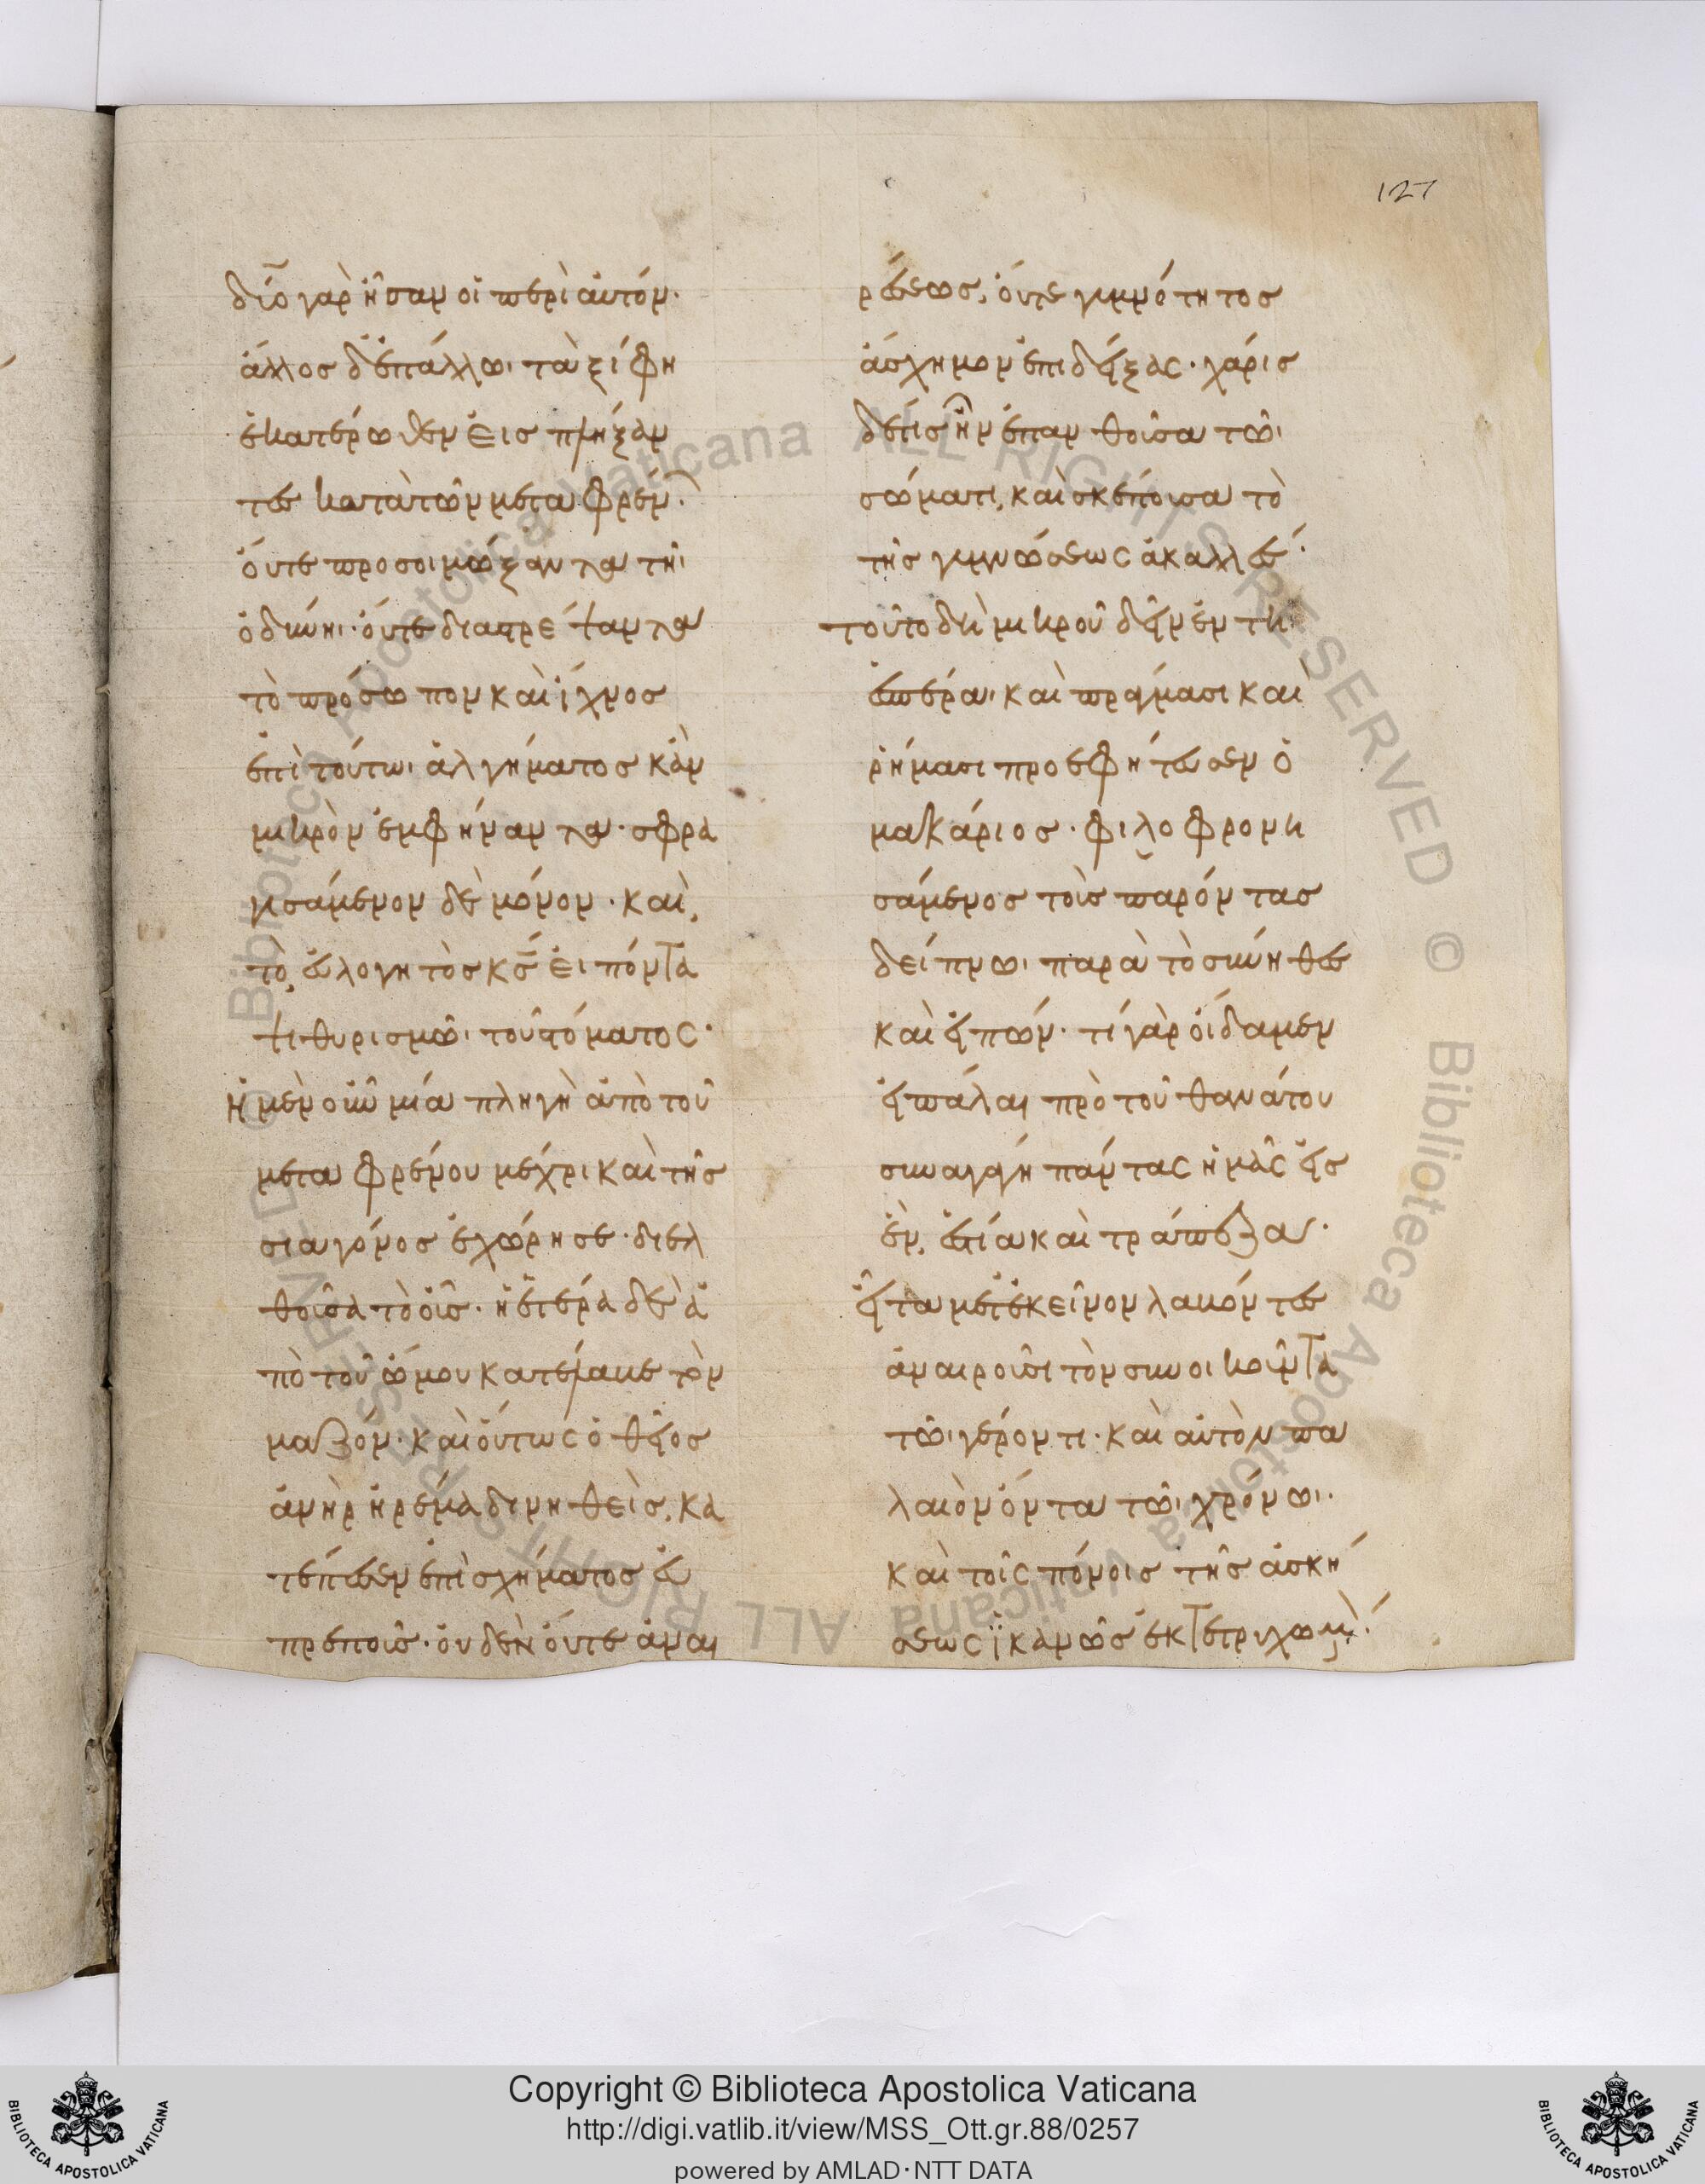 127
δύο γὰρ ἦσαν οἱ περὶ αὐτόν·
ἄλλος δ' ἐπ' ἄλλωι τὰ ξίφη
ἑκατέρωθεν εἰσπρήξαν
τες κατὰ τῶν μεταφρέν(ων)
οὔτε προσοιμώξαντα τῆι
ὀδύνηι· οὔτε διαστρέψαντα
τὸ πρόσωπον καὶ ἴχνος
ἐπὶ τούτωι ἀλγήματος κἂν
μικρὸν ἐμφήναντα· σφρα
γισάμενον δὲ μόνον· καὶ,
τὸ, εὐλογητὸς κς εἰπόντα
ψιθυρισμῶι τοῦ στόματος·
Ἡ μὲν οὖν μία πληγὴ ἀπὸ τοῦ
μεταφρένου μέχρι καὶ τῆς
σιαγόνος ἐχώρησε· διελ
θοῦσα τὸ οὖς· ἡ ἑτέρα δὲ ἀ
πὸ τοῦ ὤμου κατέμακε τὸν
μαζόν· καὶ οὕτως ὁ θεῖος
ἀνὴρ ἠρέμα δινηθεὶς, κα
τέπεσεν ἐπὶ σχήματος εὐ
πρεποῦς· οὐδὲν οὔτε ἀναι
ρέσεως, οὔτε γυμνότητος
ἄσχημον ἐπιδείξας· χάρις
δέ τις ἦν ἐπανθοῦσα τῶι
σώματι, καὶ σκέπουσα τὸ
τῆς γυμνώσεως ἀκαλλές·
τοῦτο δὴ μικροῦ δεῖν ἐν τῆ
ἑσπέραι καὶ πράγμασι καὶ
ῥήμασι προεφήτευσεν ὁ
μακάριος· φιλοφρονη
σάμενος τοὺς παρόντας
δείπνωι παρὰ τὸ σύνηθες
καὶ εἰπών· τί γὰρ οἴδαμεν
εἰ πάλαι πρὸ τοῦ θανάτου
συναγάγη πάντας ἡμᾶς εἰς
ἓν, ἑστία καὶ τράπεζα·
εἶτα μετ' ἐκεῖνον λαβόντες
ἀναιροῦσι τὸν συνοικοῦντα
τῶι γέροντι· καὶ αὐτὸν πα
λαιὸν ὄντα τῶι χρόνωι·
καὶ τοῖς πόνοις τῆς ἀσκή
σεως ἱκανῶς ἐκτετρυχωμ(έν)
Copyright © Biblioteca Apostolica Vaticana
http://digi.vatlib.it/view/MSS_Ott.gr.88/0257
powered by AMLAD·NTT DATA